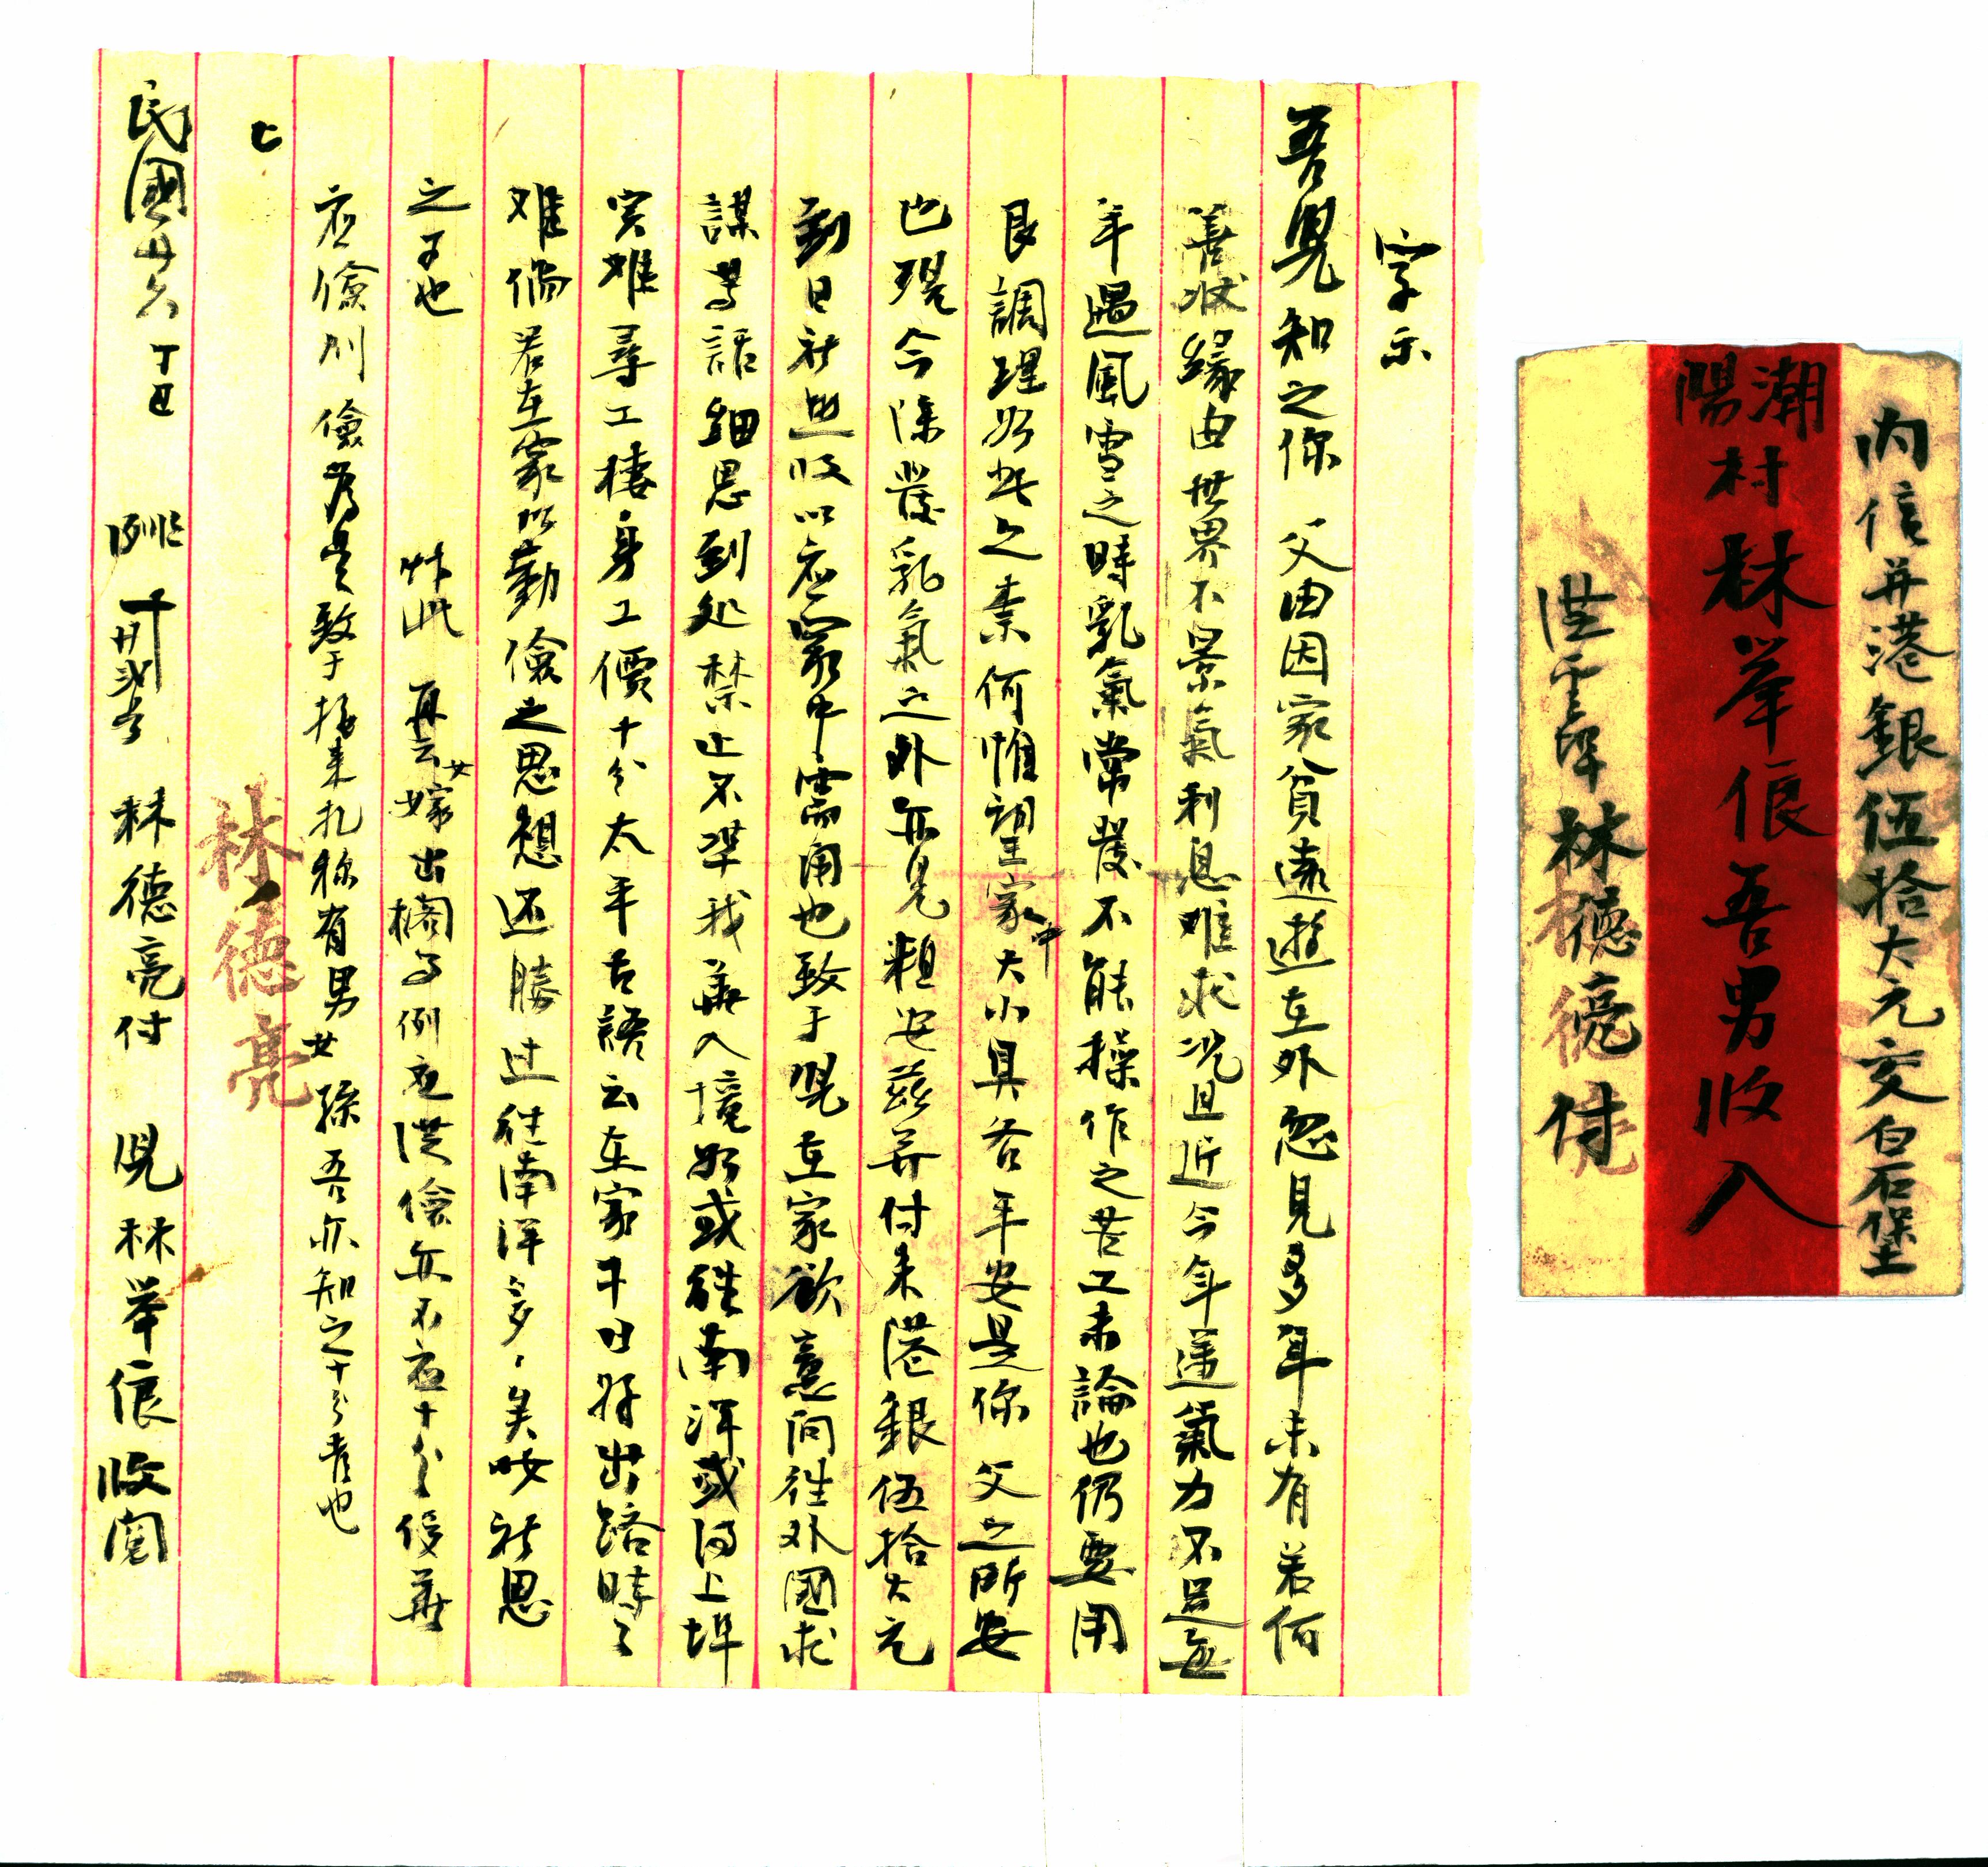 字示
吾児知之你 父由因家貧遠遊在外忽見多年未有若何
善狀緣由世界不景氣利息难求况且近今年邁氣力不足每
年遇風雪之時乳氣常發不能操作之苦工未論也仍要用
艮調理如此之素何惟望家中大小具各平安是你 父之所安
也現今除發乳氣之外亦見粗安茲并付来港銀伍拾大元
到日祈照收以应家中需用也致于児在家欲意向往外國求
謀等話細思到处禁止不準我華入境如或往南洋或汕上埠
实难尋工棲身工價十分太平古語云在家千日好出路時々
难倘若在家以勤儉之思想还勝过往南洋多々矣咹祈思
之可也 此 再云女嫁出閣了例应從儉亦不应十分侈華
应儉則儉為是致于接来札称有男女孫吾亦知之十分喜也
民國廿六 丁丑 月廿弍 林德亮付 児林举俍收閱
林德亮
内信并港銀伍拾大元交白石堡
潮陽
村林举俍吾男收入
林德亮付